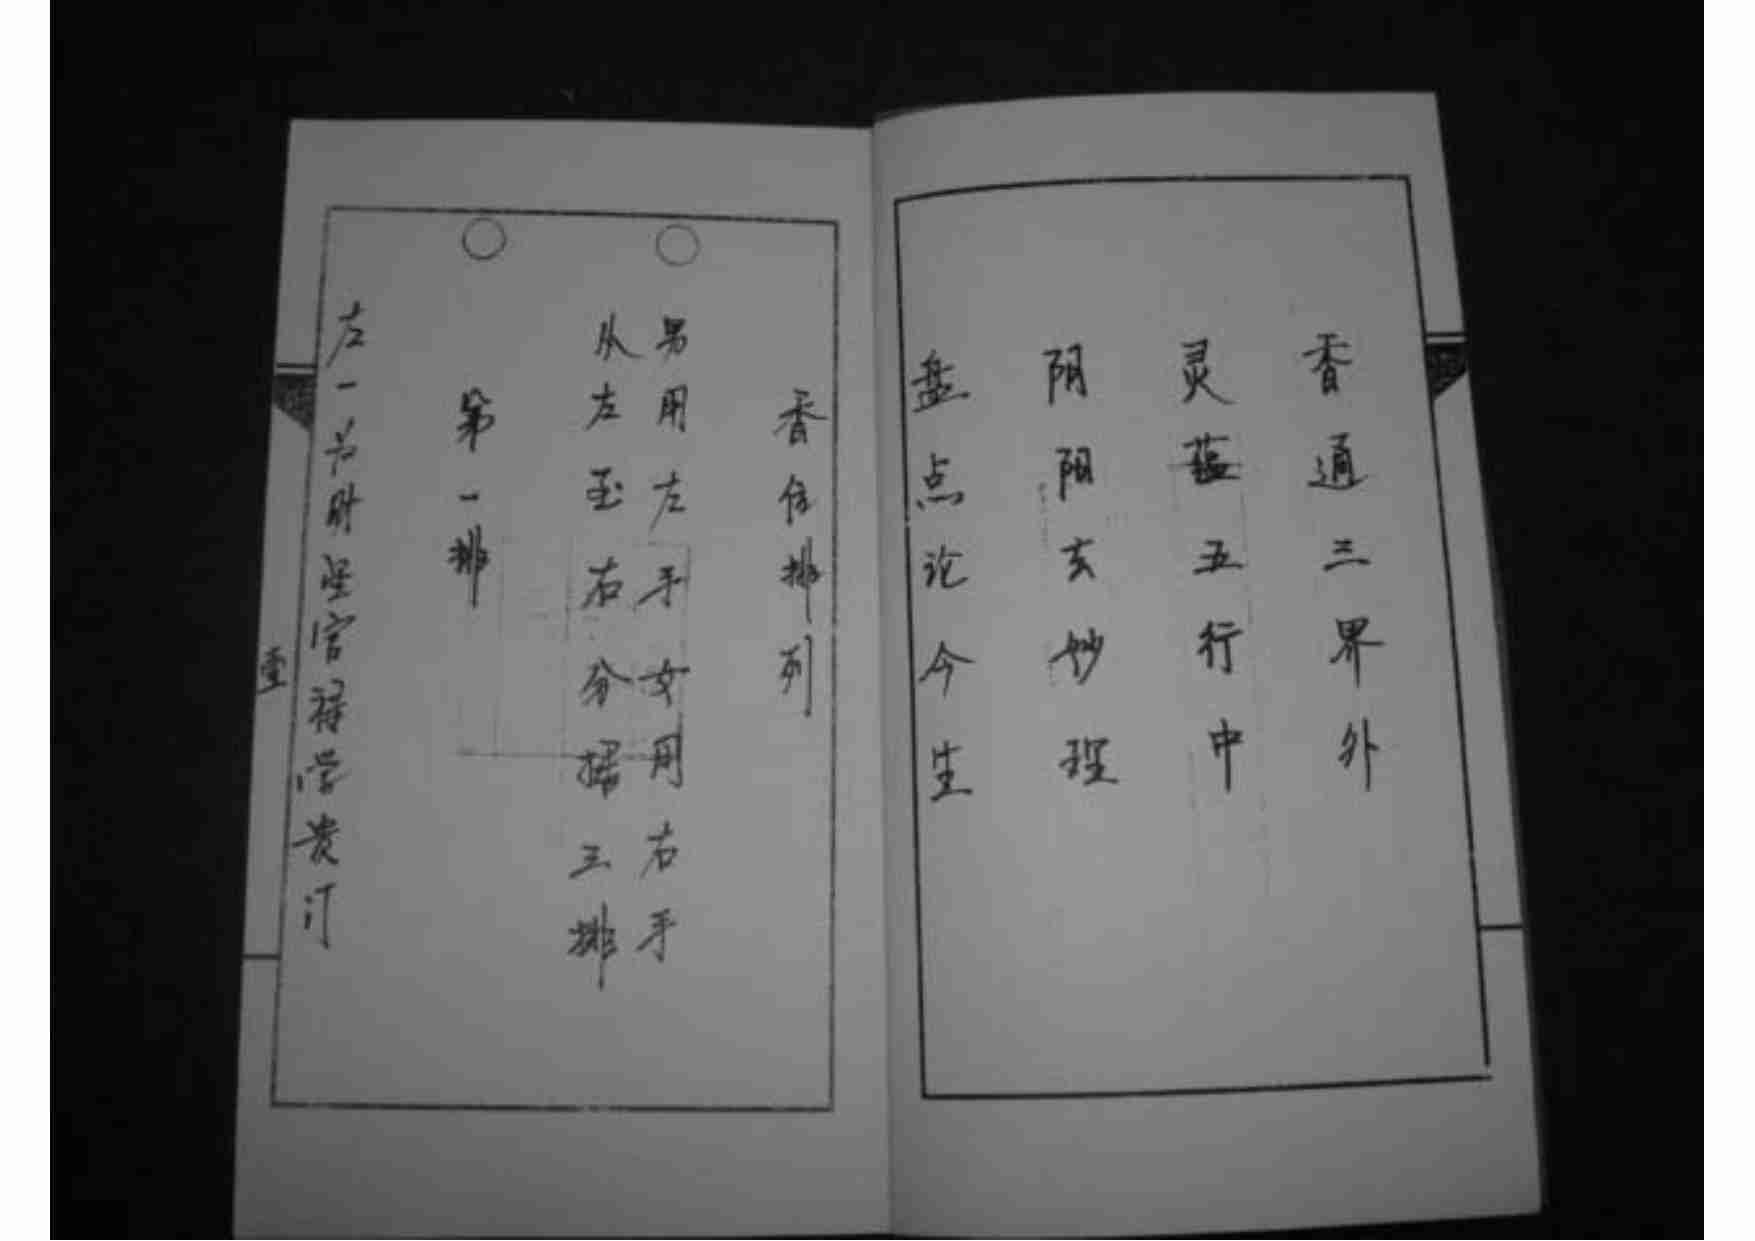 香通三界外
灵蕴五行中
阴阳玄妙理
盘点论今生
香位排列
男用左手女用右手
从左至右分插三排
第一排
左一为财坐官禄学贵
壹